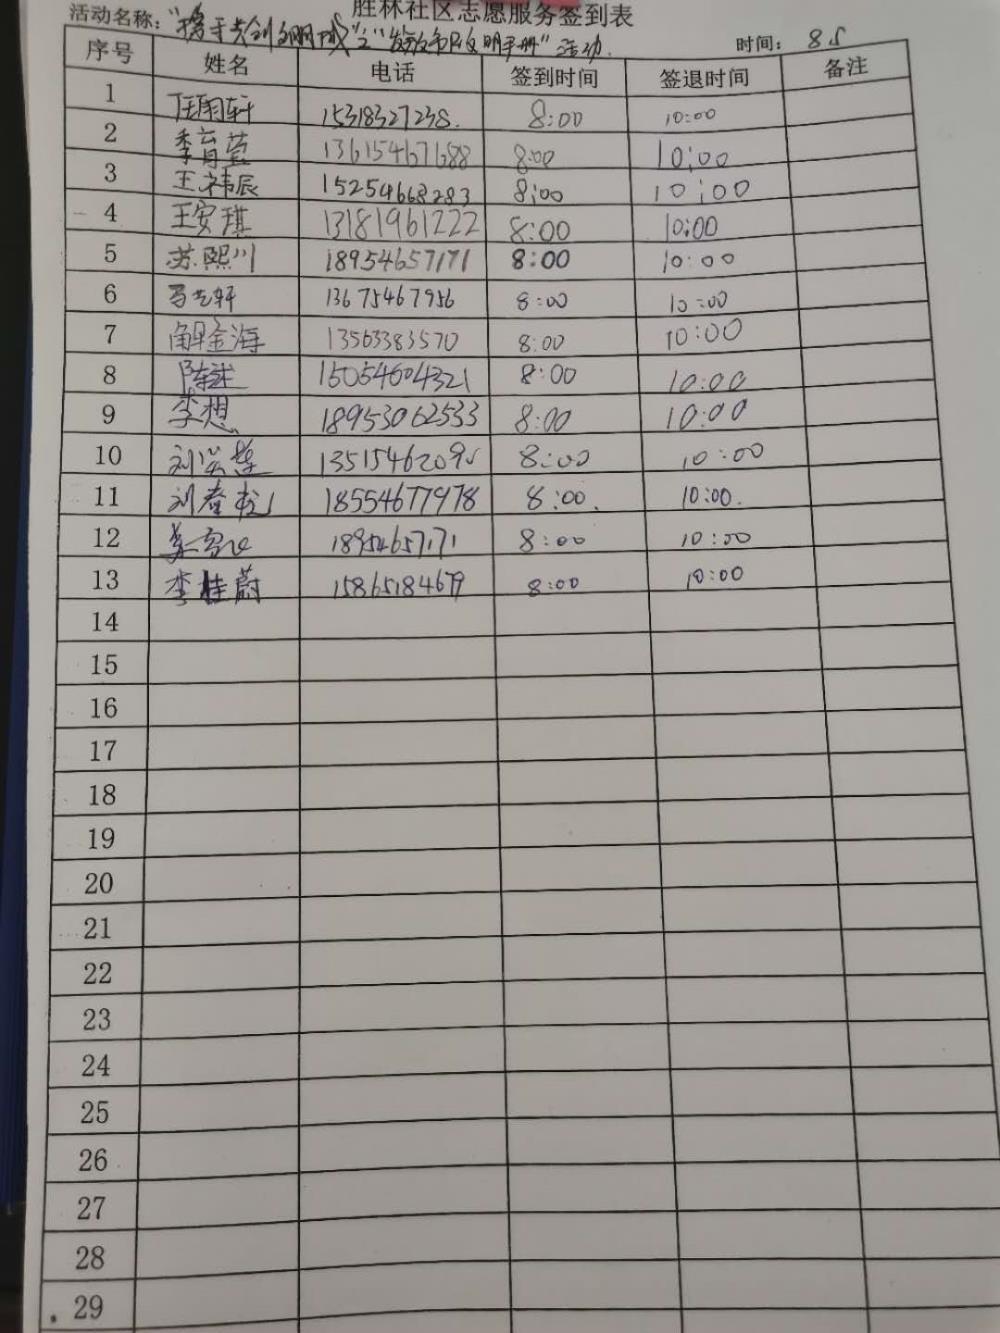 胜林社区志愿服务签到表
活动名称：“携手共创文明城”之“发放市民文明手册”活动. 时间： 8.5
序号 姓名 电话 签到时间 签退时间 备注
1 任雨轩 15318327238. 8:00 10:00
2 李育莹 13615467688 8:00 10:00
3 王祎辰 15254668283 8:00 10:00
4 王安琪 13181961222 8:00 10:00
5 苏熙川 18954657171 8:00 10:00
6 马艺轩 13675467956 8:00 10:00
7 解金海 13563383570 8:00 10:00
8 15054604321 8:00 10:00
9 李想 18953062533 8:00 10:00
10 刘 8:00 10:00
11 刘春 18554677978 8:00. 10:00.
12 18954657171 8:00 10:00
13 李桂蔚 15865184679 8:00 10:00
14
15
16
17
18
19
20
21
22
23
24
25
26
27
28
29